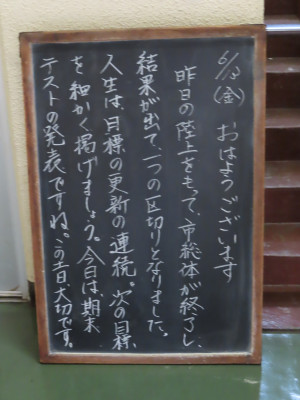 6/13(金) おはようございます
昨日の陸上をもって、市総体が終了し、
結果が出て、一つの区切りとなりました。
人生は、目標の更新の連続。次の目標
を細かく掲げましょう。今日は、期末
テストの発表ですね。この土日、大切です。